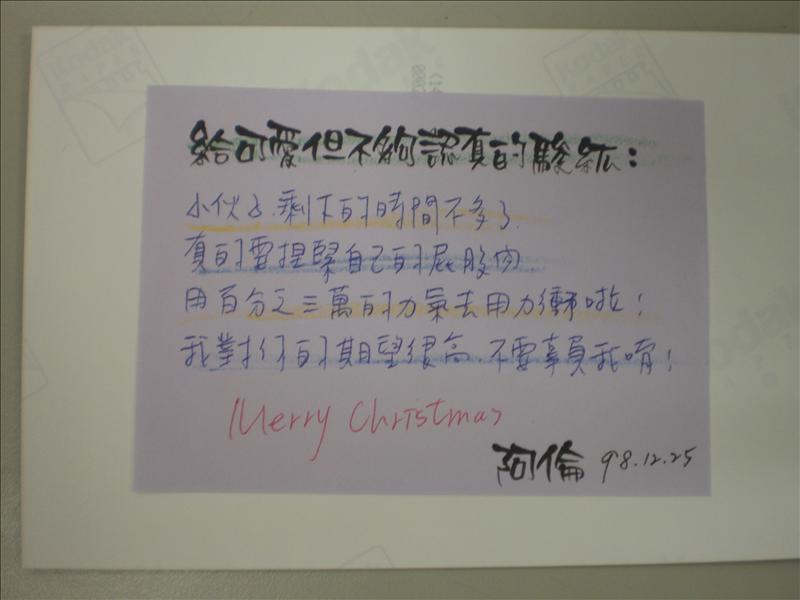 給可愛但不夠認真的駿紘：
小伙子.剩下的時間不多了.
真的要捏緊自己的屁股肉
用百分之三萬的力氣去用力衝啦！
我對你的期望很高.不要辜負我唷！
Merry Christmas
阿倫 98.12.25
Kodak